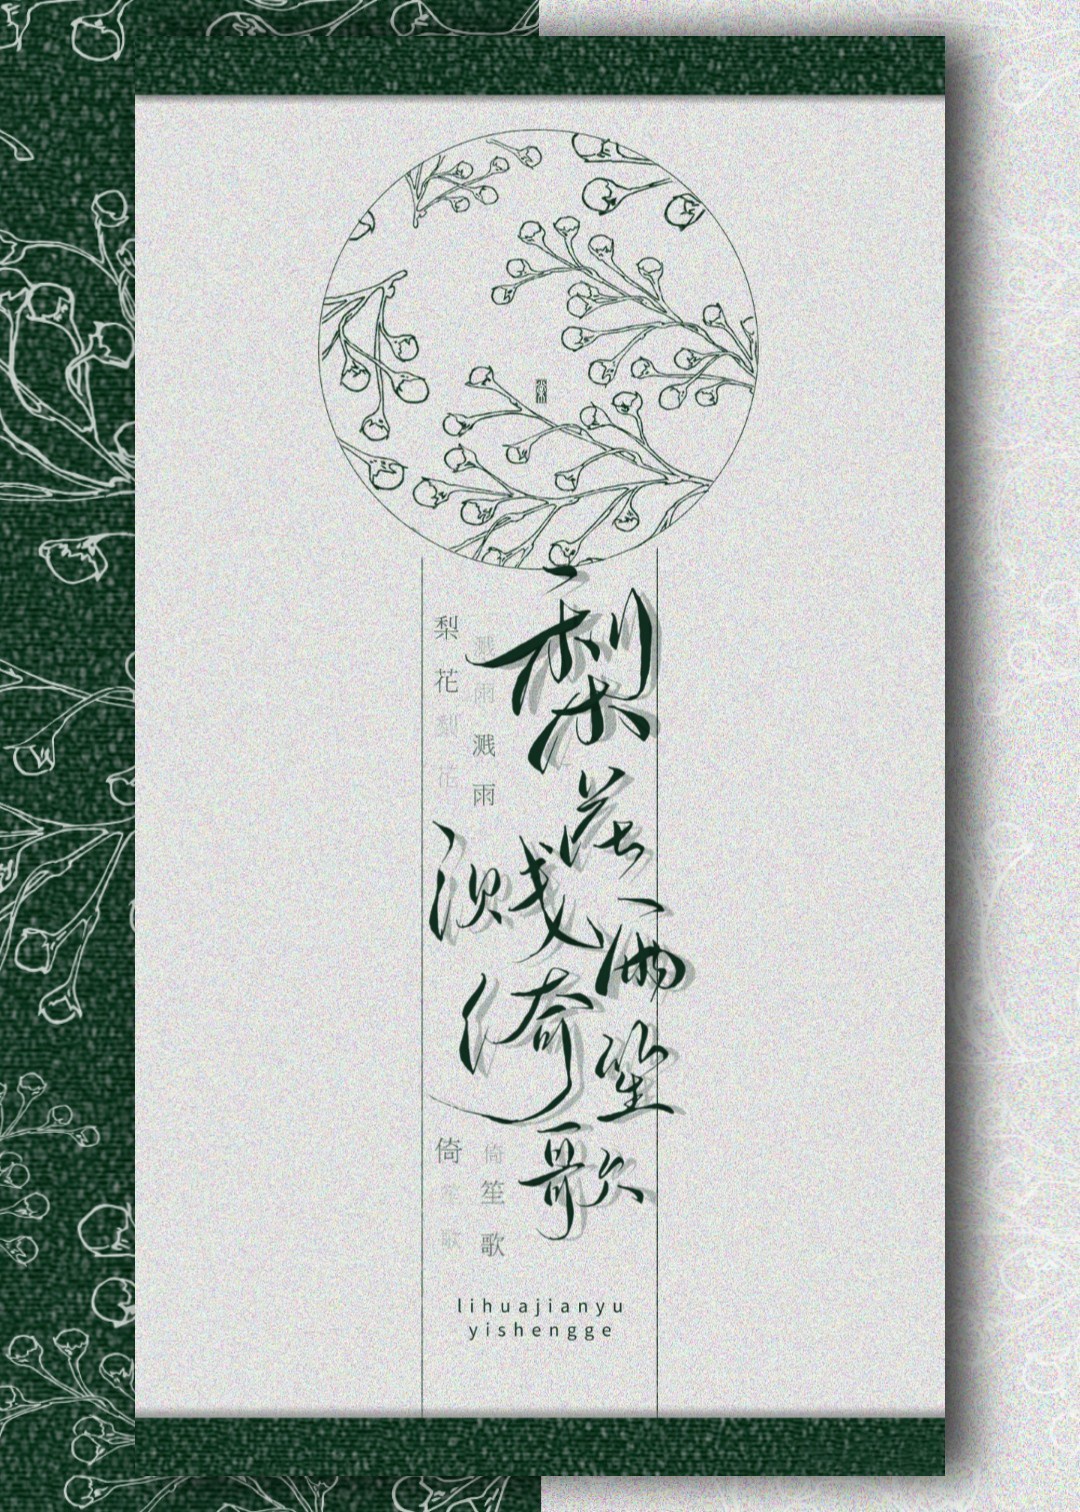 梨花溅雨倚笙歌
梨花
梨花
溅雨
溅雨
倚
笙歌
倚
笙歌
lihuajianyu
yishengge